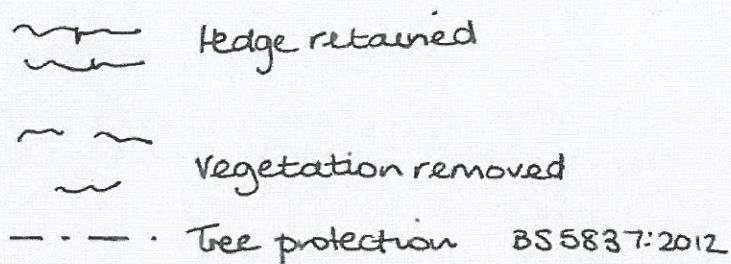 Hedge retained
vegetation removed
Tree protection BS5837:2012